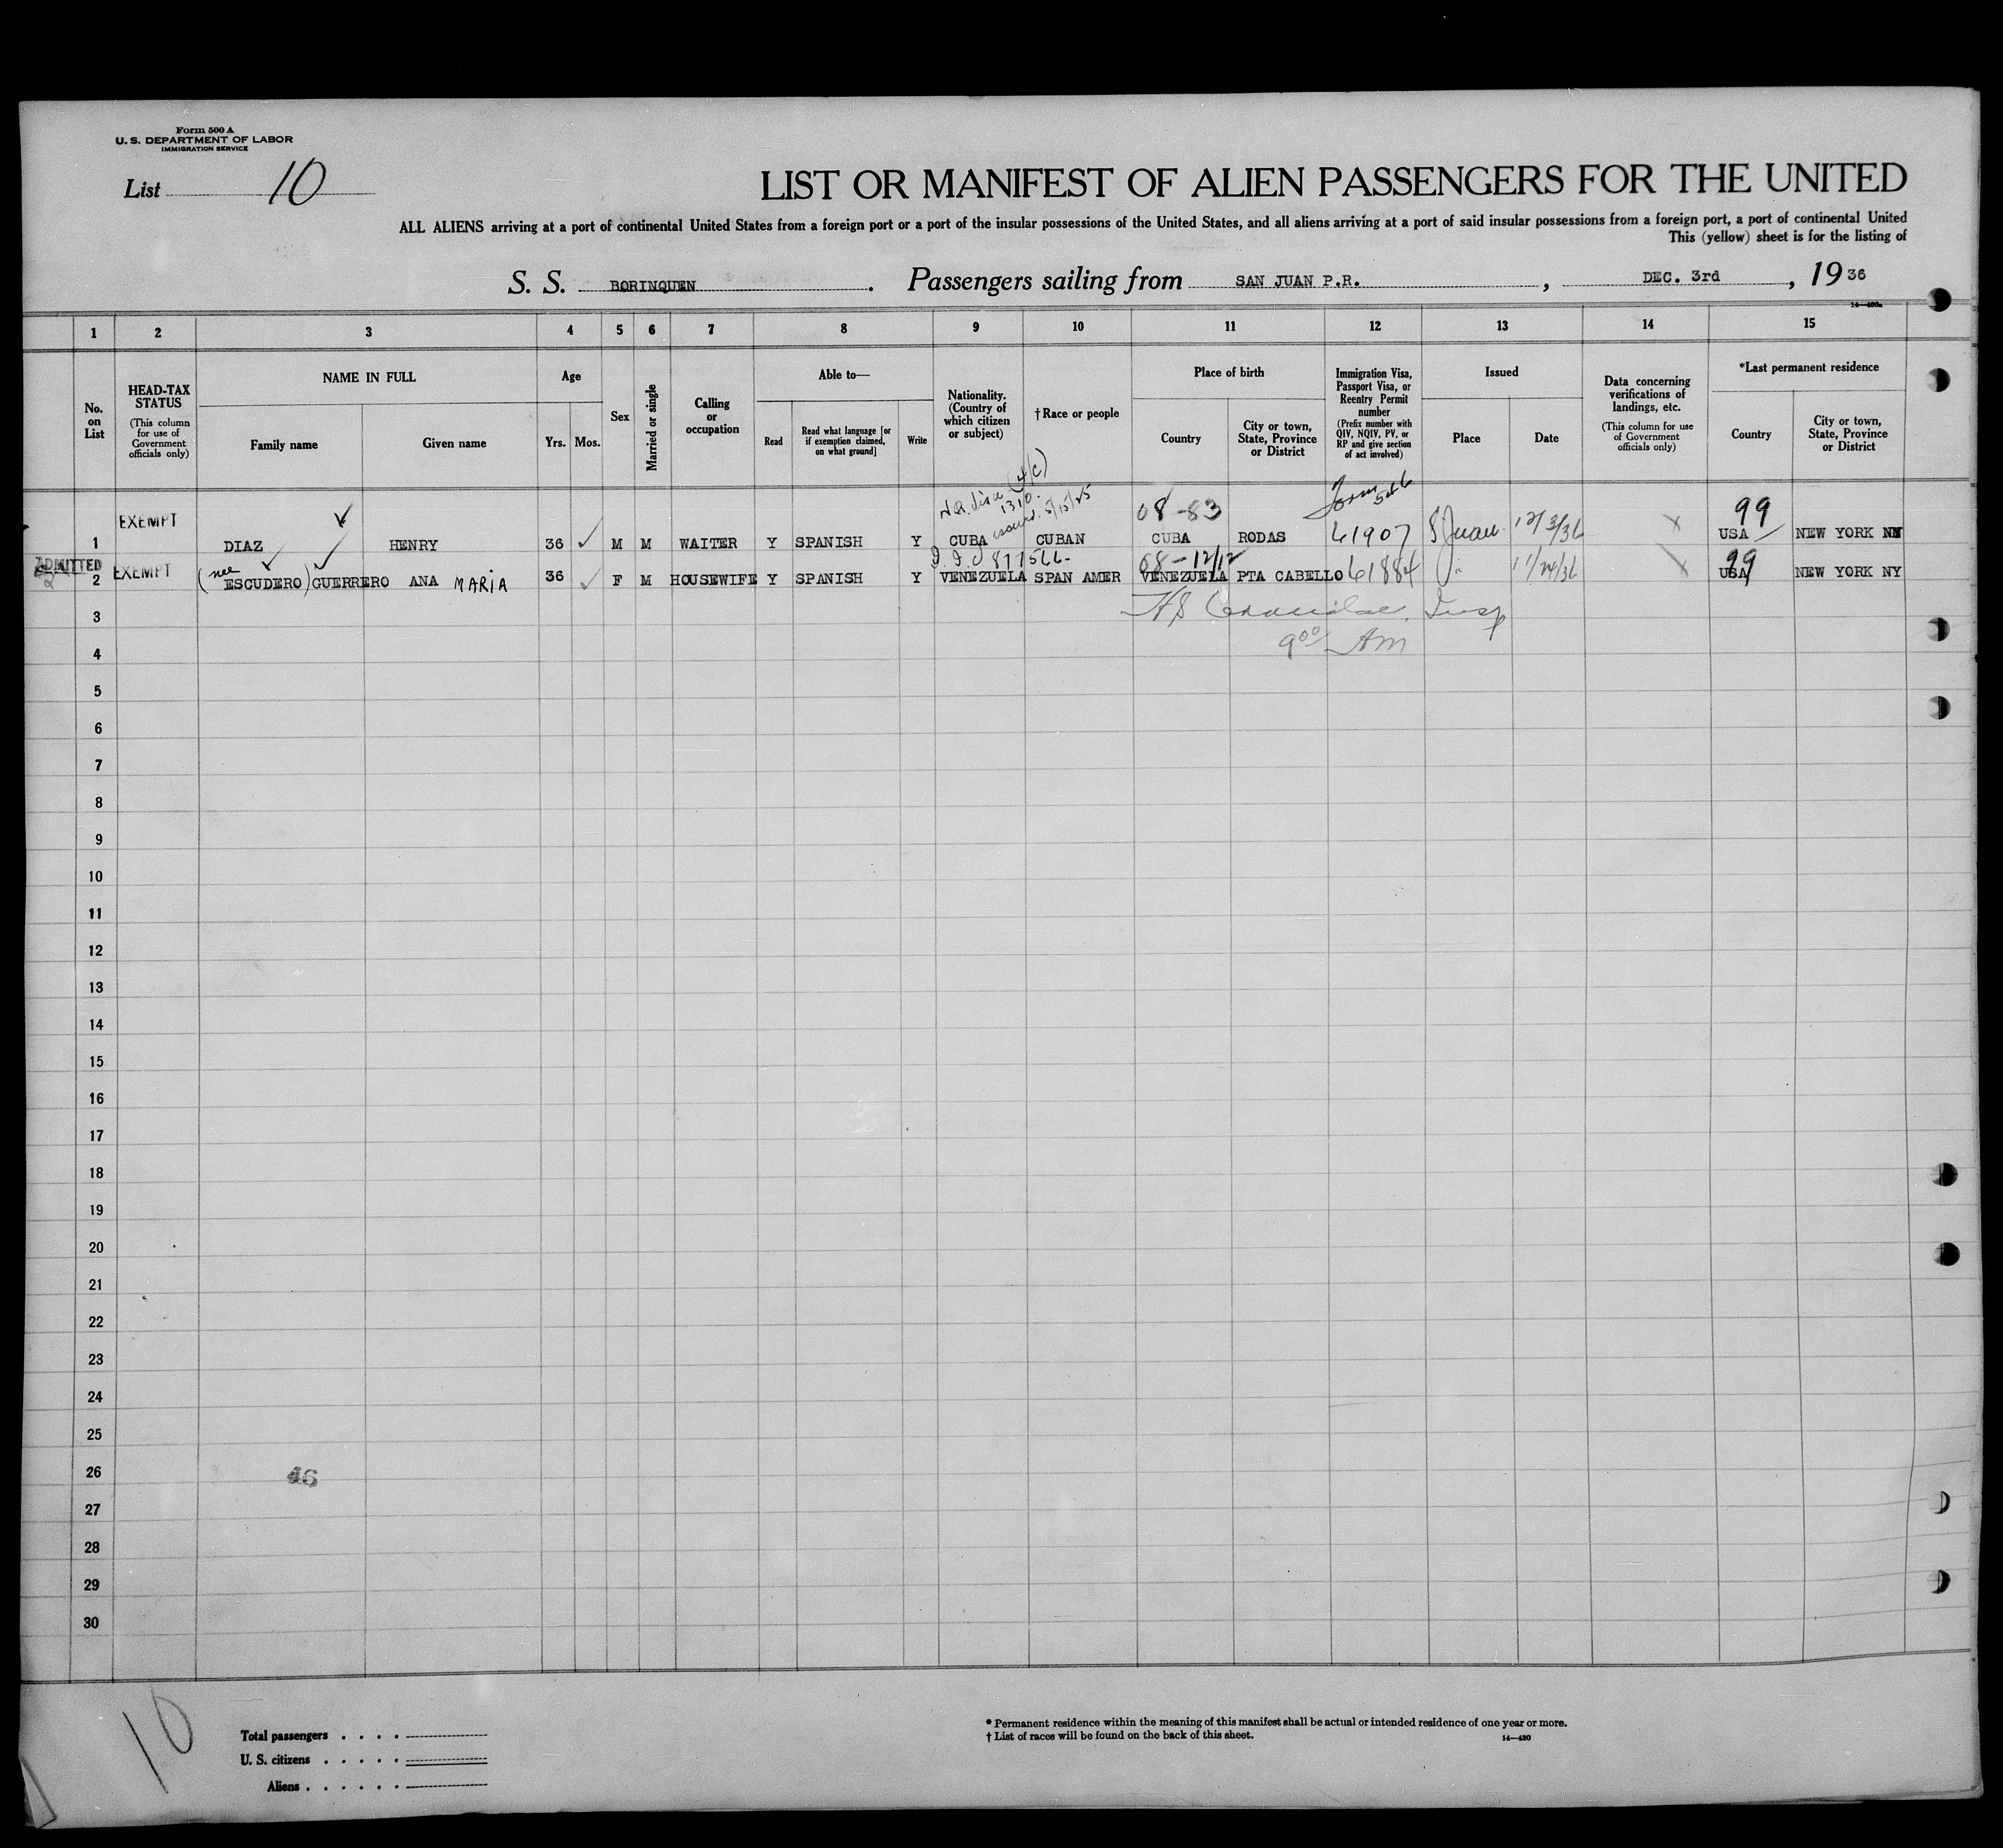 Form 500 A
U. S. DEPARTMENT OF LABOR
IMMIGRATION SERVICE
List 10
LIST OR MANIFEST OF ALIEN PASSENGERS FOR THE UNITED
ALL ALIENS arriving at a port of continental United States from a foreign port or a port of the insular possessions of the United States, and all aliens arriving at a port of said insular possessions from a foreign port, a port of continental United
This (yellow) sheet is for the listing of
S. S. BORINQUEN. Passengers sailing from SAN JUAN P.R., DEC. 3rd, 1936
1 2 3 4 5 6 7 8 9 10 11 12 13 14 15
No. on List
HEAD-TAX STATUS
(This column for use of Government officials only)
NAME IN FULL
Family name
Given name
Age
Yrs. Mos.
Sex
Married or single
Calling or occupation
Able to—
Read
Read what language [or if exemption claimed, on what ground]
Write
Nationality. (Country of which citizen or subject)
†Race or people
Place of birth
Country
City or town, State, Province or District
Immigration Visa, Passport Visa, or Reentry Permit number
(Prefix number with QIV, NQIV, PV, or RP and give section of act involved)
Issued
Place
Date
Data concerning verifications of landings, etc.
(This column for use of Government officials only)
*Last permanent residence
Country
City or town, State, Province or District
1310
issued 5/15/25
08-83
Form 546
99
1 EXEMPT DIAZ HENRY 36 M M WAITER Y SPANISH Y CUBA CUBAN CUBA RODAS 61907 S Juan 12/3/36 USA NEW YORK NY
877566
08-12/12
99
ADMITTED
2 EXEMPT (nee ESCUDERO) GUERRERO ANA MARIA 36 F M HOUSEWIFE Y SPANISH Y VENEZUELA SPAN AMER VENEZUELA PTA CABELLO 61884 11/24/36 USA NEW YORK NY
3 Insp
4 9 00 AM
5
6
7
8
9
10
11
12
13
14
15
16
17
18
19
20
21
22
23
24
25
26 46
27
28
29
30
10
Total passengers . . . .
U. S. citizens . . . . .
Aliens . . . . . .
* Permanent residence within the meaning of this manifest shall be actual or intended residence of one year or more.
† List of races will be found on the back of this sheet.
14—430